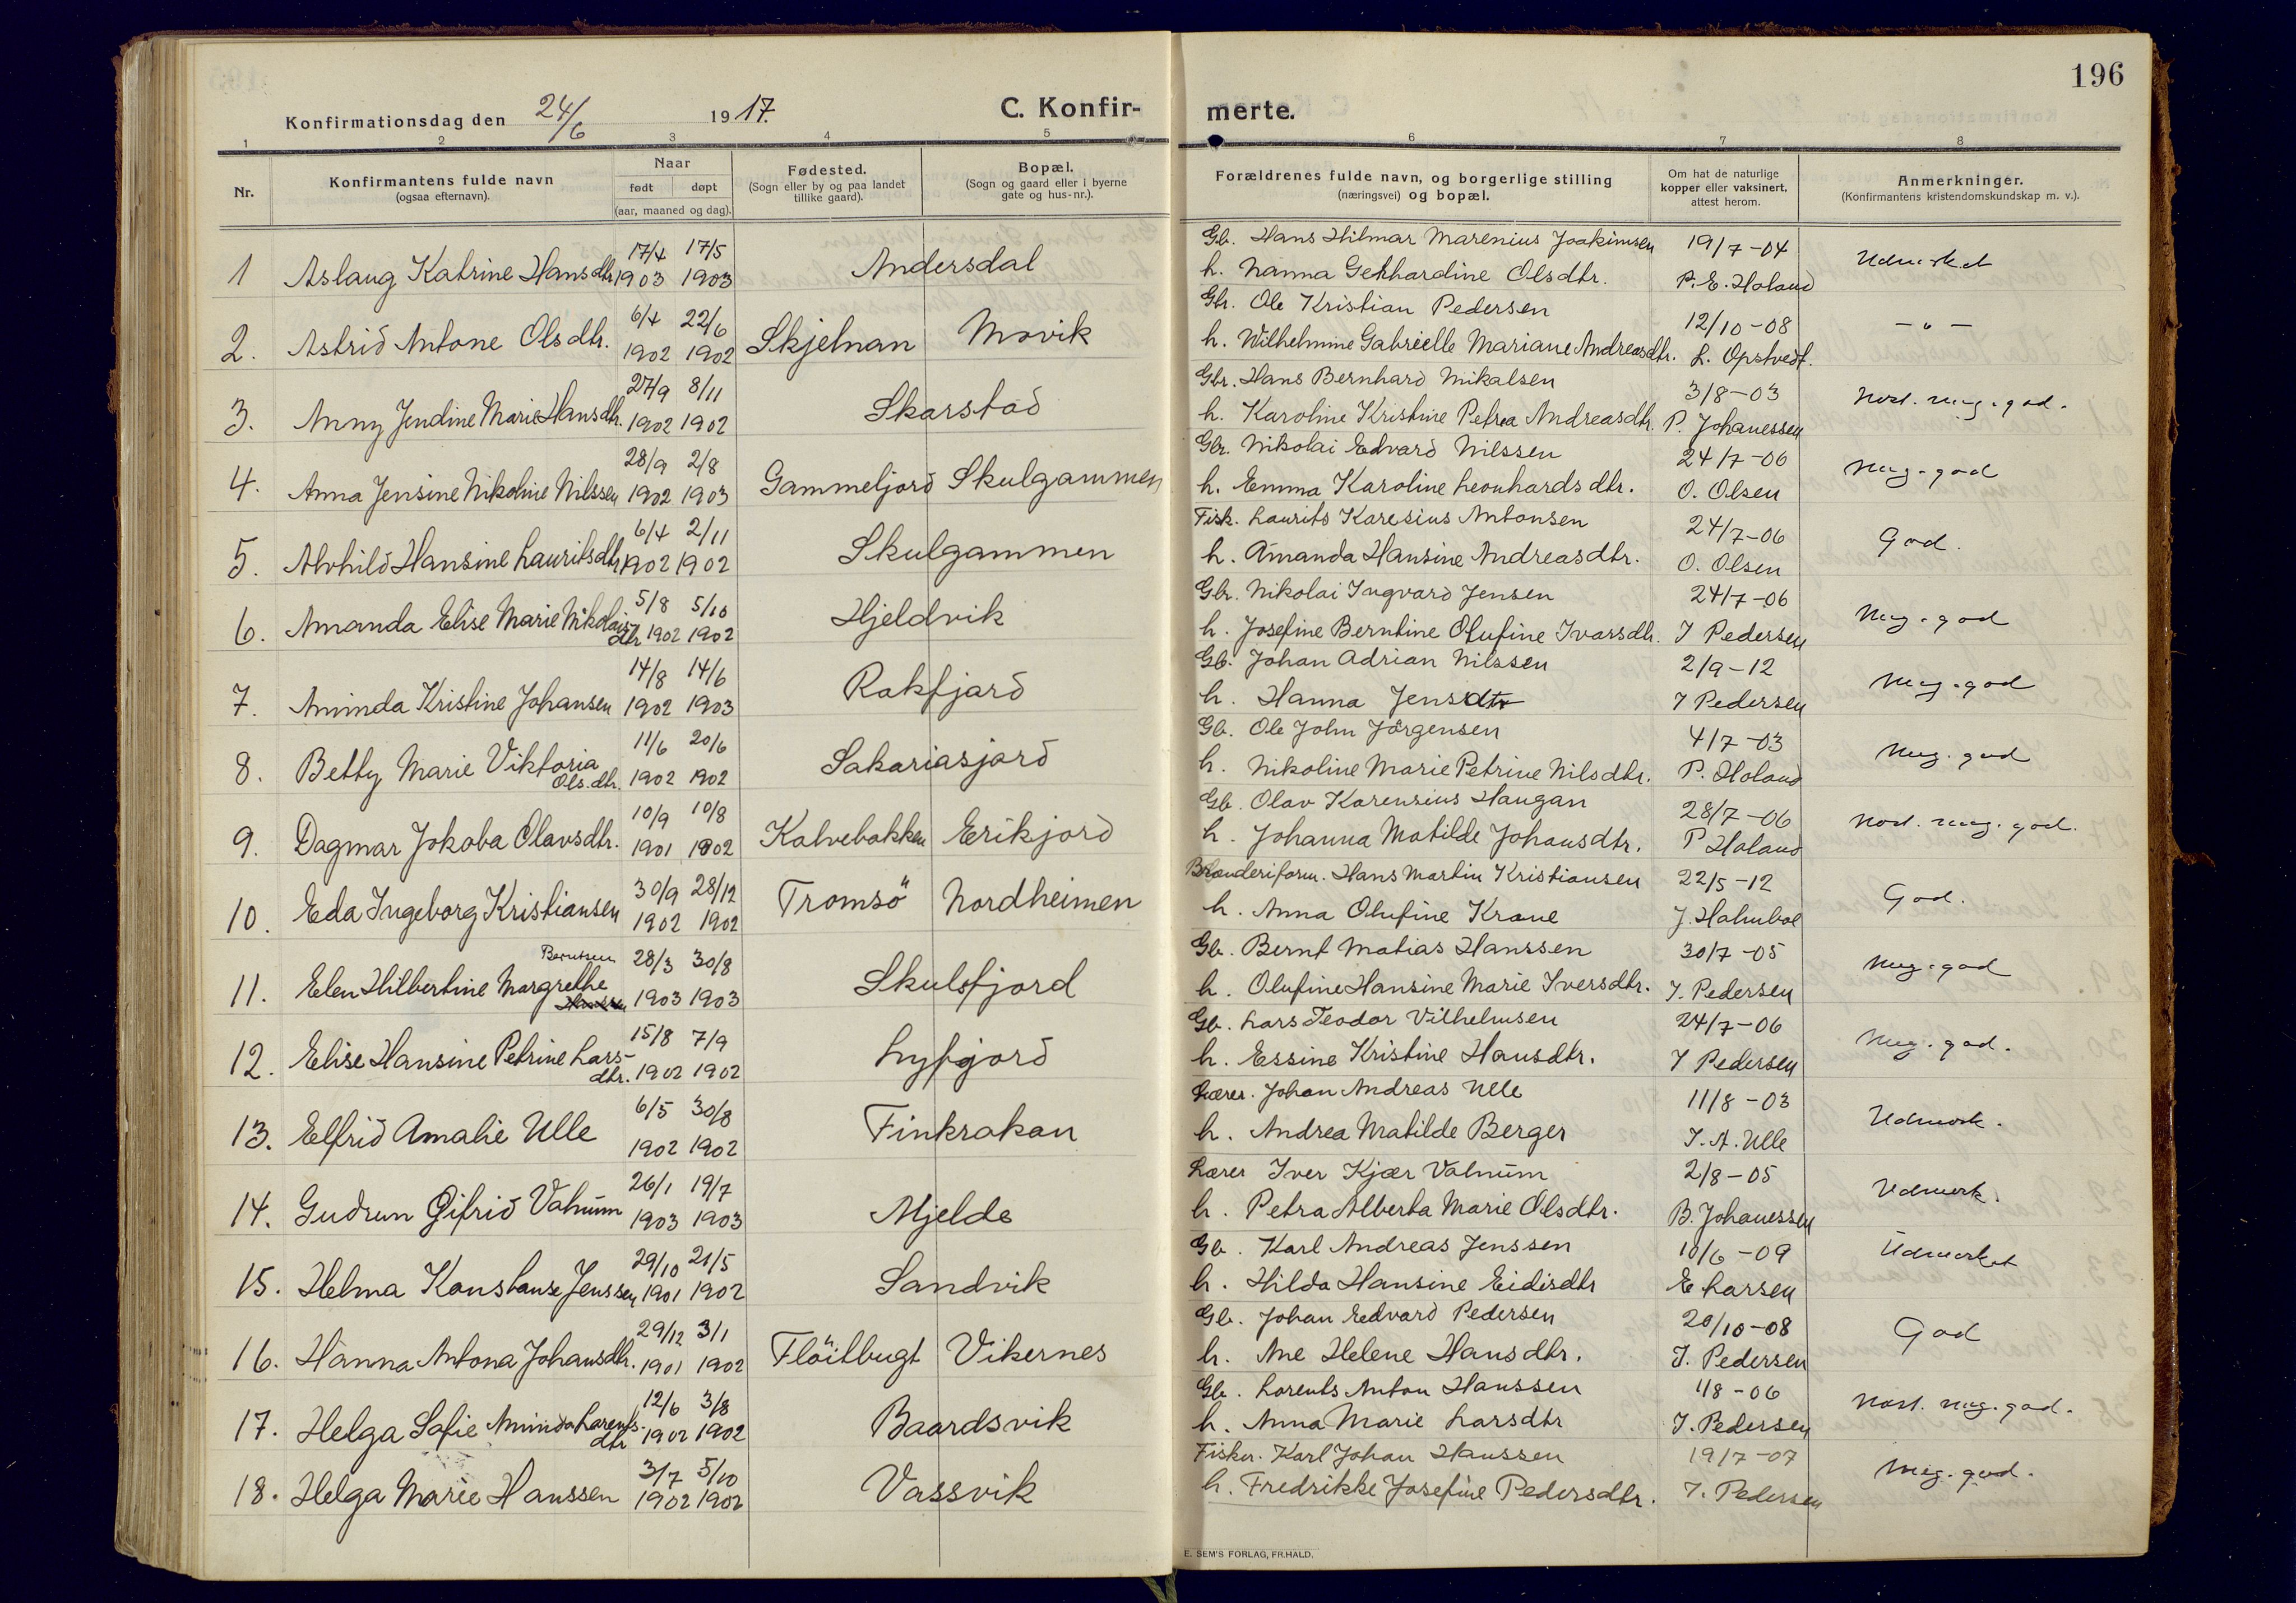 196
Konfirmationsdag den 24/6 1917.
C. Konfirmerte.
1 2 3 4 5 6 7 8
Nr.
Konfirmantens fulde navn
(ogsaa efternavn).
Naar
født døpt
(aar, maaned og dag).
Fødested.
(Sogn eller by og paa landet
tillike gaard).
Bopæl.
(Sogn og gaard eller i byerne
gate og hus-nr.).
Forældrenes fulde navn, og borgerlige stilling
(næringsvei) og bopæl.
Om hat de naturlige
kopper eller vaksinert,
attest herom.
Anmerkninger.
(Konfirmantens kristendomskundskap m. v.).
17/4 17/5 Gb. Hans Hilmar Marenius Joakimsen 19/7-04
1 Aslaug Katrine Hansdtr 1903 1903 Andersdal h. Nanna Gerhardine Olsdtr. P. E. Holand Udmerket
6/4 22/6 Gbr. Ole Kristian Pedersen 12/10-08
2. Astrid Antone Olsdtr. 1902 1902 Skjelnan Movik h. Wilhelmine Gabrielle Mariane Andreasdtr. L. Opstvedt. -"-
27/9 8/11 Gbr. Hans Bernhard Mikalsen 3/8-03
3. Anny Jendine Marie Hansdtr. 1902 1902 Skarstad h. Karoline Kristine Petrea Andreasdtr. P. Johanessen Nest. meg. god.
28/9 2/8 Gbr. Nikolai Edvard Nilssen 24/7-06
4. Anna Jensine Nikoline Nilssen 1902 1903 Gammeljord Skulgammen h. Emma Karoline Leonhardsdtr. O. Olsen Meg. god
6/4 2/11 Fisk. Laurits Karesius Antonsen 24/7-06
5. Alvhild Hansine Lauritsdtr 1902 1902 Skulgammen h. Amanda Hansine Andreasdtr. O. Olsen God.
5/8 5/10 Gbr. Nikolai Ingvard Jensen 24/7-06
6. Amanda Elise Marie Nikolaisdtr 1902 1902 Hjeldvik h. Josefine Berntine Olufine Ivarsdtr. I Pedersen Meg. god
14/8 14/6 Gb. Johan Adrian Nilssen 2/9-12
7. Aminda Kristine Johansen 1902 1903 Rakfjord h. Hanna Jensdtr I Pedersen Meg. god
11/6 20/6 Gb. Ole John Jörgensen 4/7-03
8. Betty Marie Viktoria Ols.dtr. 1902 1902 Sakariasjord h. Nikoline Marie Petrine Nilsdtr. P. Holand Meg. god
10/9 10/8 Gb. Olav Karensius Haugan 28/7-06
9. Dagmar Jokoba Olavsdtr. 1901 1902 Kalvebakken Erikjord h. Johanna Matilde Johansdtr. P Holand Nest. meg. god.
30/9 28/12 Branderiform. Hans Martin Kristiansen 22/5-12
10. Eda Ingeborg Kristiansen 1902 1902 Tromsö Nordheimen h. Anna Olufine Krane J. Holmboe God.
Berntsen 28/3 30/8 Gb. Bernt Matias Hanssen 30/7-05
11. Elen Hilbertine Margrethe Hanssen 1903 1903 Skulsfjord h. Olufine Hansine Marie Iversdtr. I. Pedersen Meg. god
15/8 7/9 Gb. Lars Teodor Vilhelmsen 24/7-06
12. Elise Hansine Petrine Larsdtr. 1902 1902 Lyfjord h. Essine Kristine Hansdtr. I Pedersen Meg. god.
6/5 30/8 Lærer. Johan Andreas Ulle 11/8-03
13. Elfrid Amalie Ulle 1902 1902 Finkrakan h. Andrea Matilde Berger J. A. Ulle Udmerk.
26/1 19/7 Lærer Iver Kjær Valnum 2/8-05
14. Gudrun Gifrid Valnum 1903 1903 Mjelde h. Petra Alberta Marie Olsdtr. B. Johanessen Udmerk.
29/10 21/5 Gb. Karl Andreas Jenssen 10/6-09
15. Helma Konstanse Jenssen 1901 1902 Sandvik h. Hilda Hansine Eidisdtr E Larsen Udmerket
29/12 3/1 Gb. Johan Edvard Pedersen 20/10-08
16. Hanna Antona Johansdtr. 1901 1902 Flöitbugt Vikernes h. Ane Helene Hansdtr. I. Pedersen God
12/6 3/8 Gb. Lorents Anton Hanssen 1/8-06
17. Helga Sofie Aminda Lorentsdtr 1902 1902 Baardsvik h. Anna Marie Larsdtr I. Pedersen Nest. meg. god.
3/7 5/10 Fisker. Karl Johan Hanssen 19/7-07
18. Helga Marie Hanssen 1902 1902 Vassvik h. Fredrikke Josefine Pedersdtr. I. Pedersen Meg. god.
E. SEM'S FORLAG, FR.HALD.